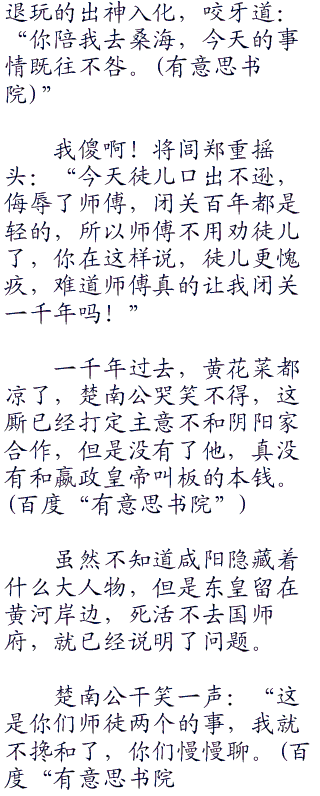 退玩的出神入化，咬牙道：
“你陪我去桑海，今天的事
情既往不咎。(有意思书
院)”
我傻啊！将闾郑重摇
头：“今天徒儿口出不逊，
侮辱了师傅，闭关百年都是
轻的，所以师傅不用劝徒儿
了，你在这样说，徒儿更愧
疚，难道师傅真的让我闭关
一千年吗！”
一千年过去，黄花菜都
凉了，楚南公哭笑不得，这
厮已经打定主意不和阴阳家
合作，但是没有了他，真没
有和嬴政皇帝叫板的本钱。
(百度“有意思书院”)
虽然不知道咸阳隐藏着
什么大人物，但是东皇留在
黄河岸边，死活不去国师
府，就已经说明了问题。
楚南公干笑一声：“这
是你们师徒两个的事，我就
不搀和了，你们慢慢聊。(百
度“有意思书院